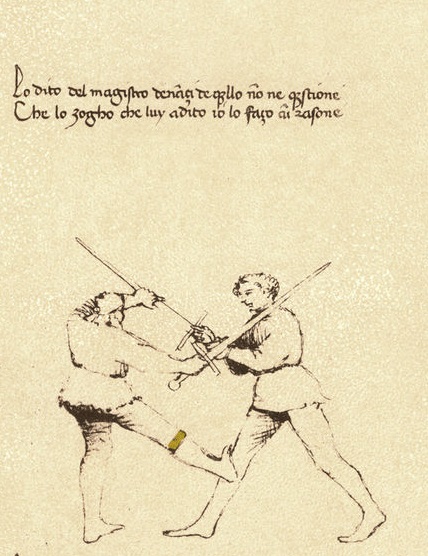 Lo dito del magistro denãçi de q̃llo nõ ne q̃stione
Che lo zogho che luy a dito io lo faço cũ rasone